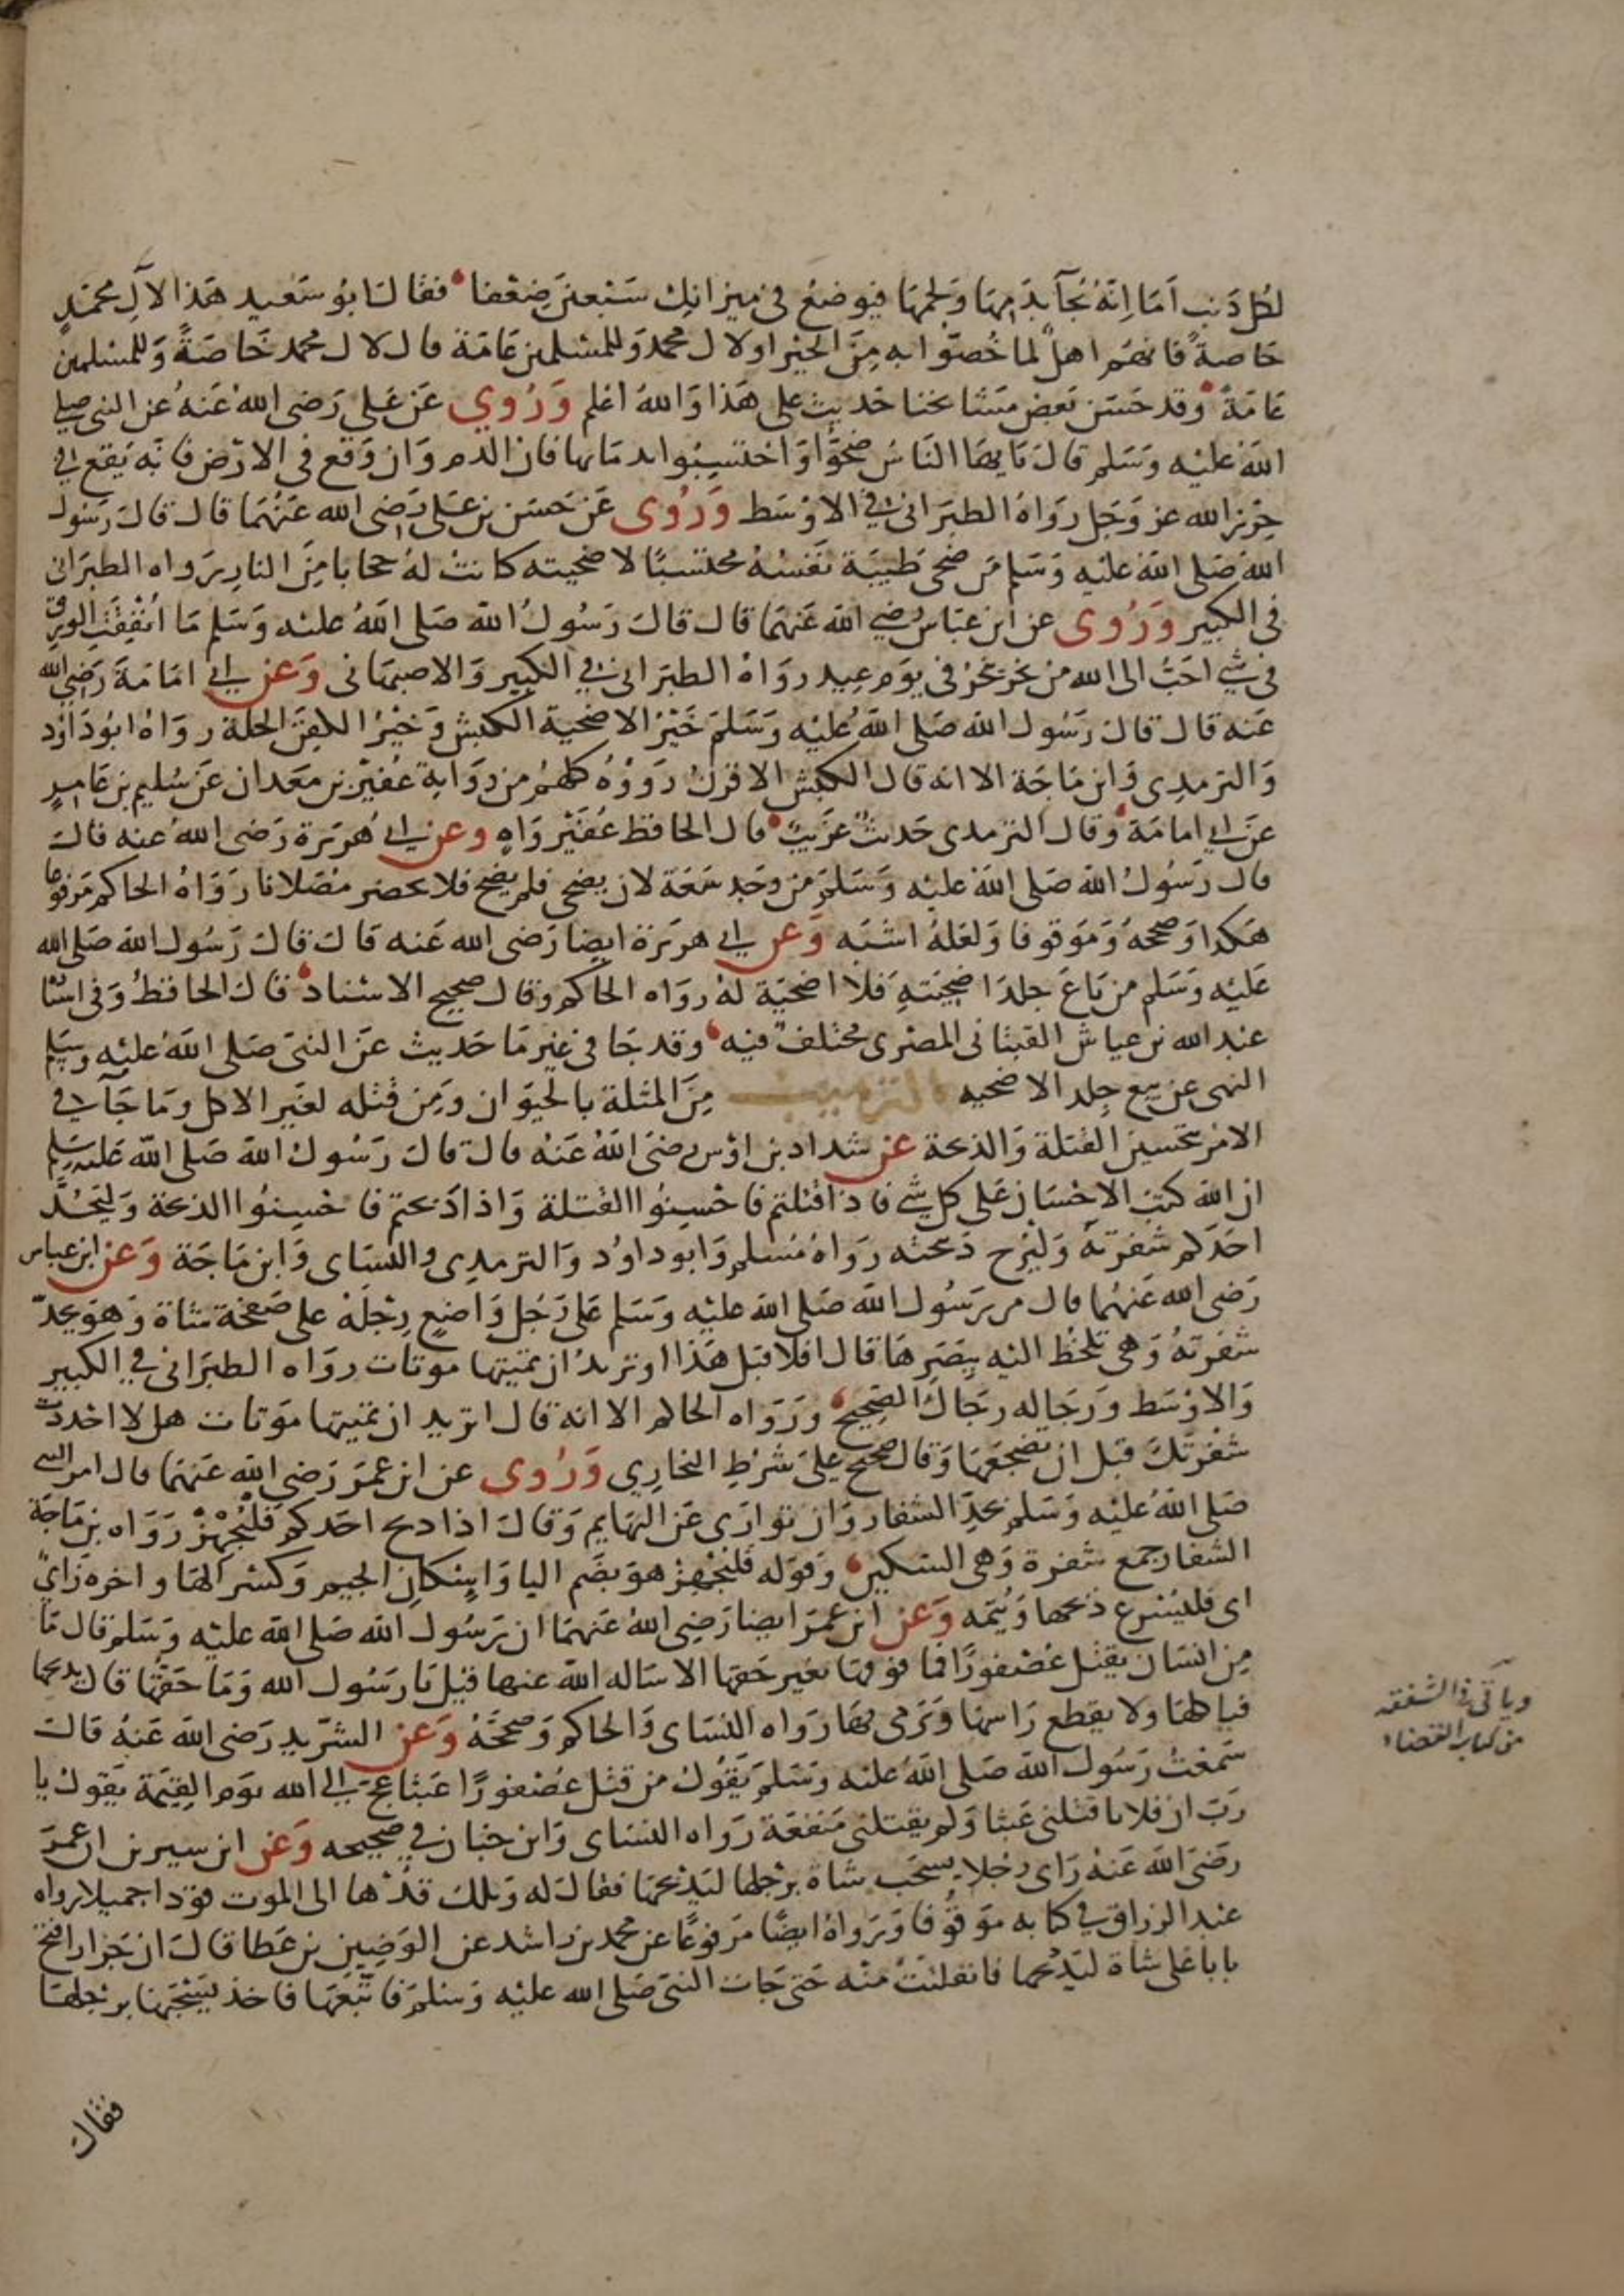 لكل ذنب اَمَا اِنّهُ يُجآ بدَمِهَا وَلحمهَا فيوضعُ في ميزانِك سَبْعينَ ضِعْفا فقالَ ابُو سَعيد هَذا لآلِ محمّدٍ
خاصةً فانهُم اهلٌ لما خُصوّا به مِنَ الخير او لال محمد وَللمسْلمين عَامّة قال لال محمد خَاصَةً وَللمسْلمين
عَامّةً وَقد حَسَن بَعض مشَايخنا حَديث على هَذا وَاللهُ اعْلم وَرُوي عَن عَلي رَضى اللهُ عَنهُ عن النبى صلى
اللهُ عَليْه وَسَلم قالَ يَايها النَاسُ ضحوُّا وَاحتسِبُوا بدمَايها فان الدم وَان وَقع فى الارْض فانّه يَقع في
حِرْز الله عز وَجَل رَوَاهُ الطبَرانى في الاوْسَط وَرُوى عَن حَسَن بن عَلى رَضى الله عَنْهُمَا قال قالَ رَسُول
اللهَ صَلى اللهُ عَليْه وَسَلم مَن ضحى طَيِبَة نَفسُهُ محتسبًا لاضحيته كانتْ لهُ حجابا مِنَ النارِ رَواه الطبَرانى
فى الكبير وَرُوى عن ابن عبَاس رضي اللهُ عَنهُمَا قال قالَ رَسُولُ الله صَلى اللهُ عليْه وَسَلم مَا اُنْفِقَتِ الورِق
فى شي احَبُّ الى الله من نحر ينحرُ فى يوَم عِيد رواهُ الطبَرانى في الكبير وَالاصبهَانى وَعن ابي امَامَةَ رَضِي الله
عَنه قال قالَ رَسُول الله صَلى اللهُ عَليْه وَسَلمَ خَيْرُ الاضحية الكبشُ وَخيْرُ الكفن الحلة رواهُ ابُو دَاوُد
وَالترمدِى وَابن مَاجَة الا انه قال الكبش الاقرنُ رَووْهُ كلهُم من رِوَاية عُفيْر بن معَدان عَن سُليم بن عَامِرٍ
عَن ابي امامَة وقال الترمدى حَديثٌ غرَيبٌ قال الحافظ عُفَيْر وَاهٍ وعن ابي هُرَيرة رَضى اللهُ عنه قالَ
قال رَسُولُ الله صَلى اللهُ عليْه وَسَلمَ من وجَد سَعَة لان يضحى فلم يضَح فلا يحضر مُصَلانا رَوَاهُ الحاكم مَرفوعًا
هَكذا وَصححهُ وَمَوقوفا وَلعَلهُ اشبَه وَعن ابي هريَرة ايضا رَضى الله عَنه قالَ قالَ رَسُول الله صَلى الله
عَليْه وَسَلم من بَاعَ جِلدَ اضحيَتهِ فَلا اضحيّة لهُ رواه الحاكم وقال صحيح الاسْناد قالَ الحافظُ وَفى اسْنا
عَبد الله بن عياش القتبانى المصْرى مختلف فيه وقد جَا فى غيْر مَا حَديث عَن النبىّ صَلى اللهُ عليْه وسَلم
النهى عن بيع جلد الاضحيه الترهيب مِنَ المثلة بالحيَوان وَمن قتْله لغَير الاكل ومَا جَآ في
الامْر بتحسين القتلة وَالذبحة عن شداد بن اوْس رضىَ اللهُ عَنْه قالَ قالَ رَسُولُ الله صَلى الله عَليْه وسَلم
ان الله كتبَ الاحْسَان عَلى كل شي فاذا قتلتم فاحْسِنُوا القتلة وَاذا ذبحتم فاحْسِنُوا الذبحة وَليحُدَّ
احَدَكم شفْرَتهُ وَليُرح ذَبحتَه رَوَاهُ مُسْلم وَابو داوُد وَالترمدِى والنسَاى وَابن مَاجَة وَعن ابن عباس
رَضى الله عَنهُما قال مر رَسُول الله صَلى اللهُ عليْه وَسَلم عَلى رَجُل وَاضِعٍ رِجْلهُ على صَفحَة شاة وَهوَ يحدّ
شفرتهُ وَهى تلحَظ اليْه ببصَرِهَا قال افلا قبَل هَذا او تريدُ ان تميتها موتات رواه الطبَرانى في الكبير
وَالاوْسَط وَرجَاله رِجَالُ الصَحِيح وَرَوَاه الحاكم الا انه قال اتريد ان تميتها مَوتات هل لا احْددت
شفرتكَ قبل ان تضجعَهَا وَقال صحيح على شَرْطِ البخارِي وَرُوى عن ابن عمرَ رَضي الله عَنهمَا قال امر النبى
صَلى اللهُ عليْه وَسَلم بحدِّ الشفار وَان تواَرى عَن البهَايم وَقالَ اذا دبح احَدكم فلْيُجْهِزْ رَوَاه بن مَاجَة
الشفار جمع شفرة وَهى السّكين وَقوله فلْيُجْهِزْ هوَ بضَم اليا وَاسْكانِ الجيم وَكسْر الهَا واخره زَايٌ
اى فليُسْرع ذَبحها وَيُتمّه وَعن ابن عمرَ ايضا رَضِى اللهُ عَنهمَا ان رَسُول الله صَلى اللهُ عليْه وَسَلم قال مَا
مِن انسَان يقتل عُصْفورًا فما فوقها بغير حَقها الا ساله اللهُ عنها قيْل يَا رسُول الله وَمَا حَقُّها قال يدبحها
فياكلهَا ولا يقطع رَاسهَا وَيَرْمى بهَا رَواه النسَاى وَالحاكم وَصححَهُ وَعن الشرّيد رَضى اللهُ عَنهُ قالَ
سَمعْتُ رَسُول الله صَلى اللهُ عَليه وَسَلمَ يَقُولُ من قتل عصْفورًا عَبثا عَجّ الى الله يوَم القِيَمة يَقول يا
رَبّ ان فلانا قتلنى عَبثا وَلم يقتلنى مَنفعَة رَواه النسَاى وَابن حبان في صحيحه وَعن ابن سيرين ان عمرَ
رَضىَ اللهُ عَنهُ رَاى رجلا يسحَب شاة برجلها ليذبحهَا فقالَ له وَيلك قُدْها الى الموت قودا جميلا رواه
عَبد الرزاق في كتابه موَقوُفا وَرَواهُ ايضًا مَرفوعًا عن محمد بن راشد عن الوَضِين بن عَطا قالَ ان جَزارا فتح
بابا على شاة ليَذبحها فانفلتتْ منْه حَتى جَات النبىَ صَلى الله عليْه وَسَلمَ فاتّبَعَهَا فاخذ يسْحَبَهَا برجلهَا
فقالَ
وياتى فى الشفقه
من كتاب القضاء